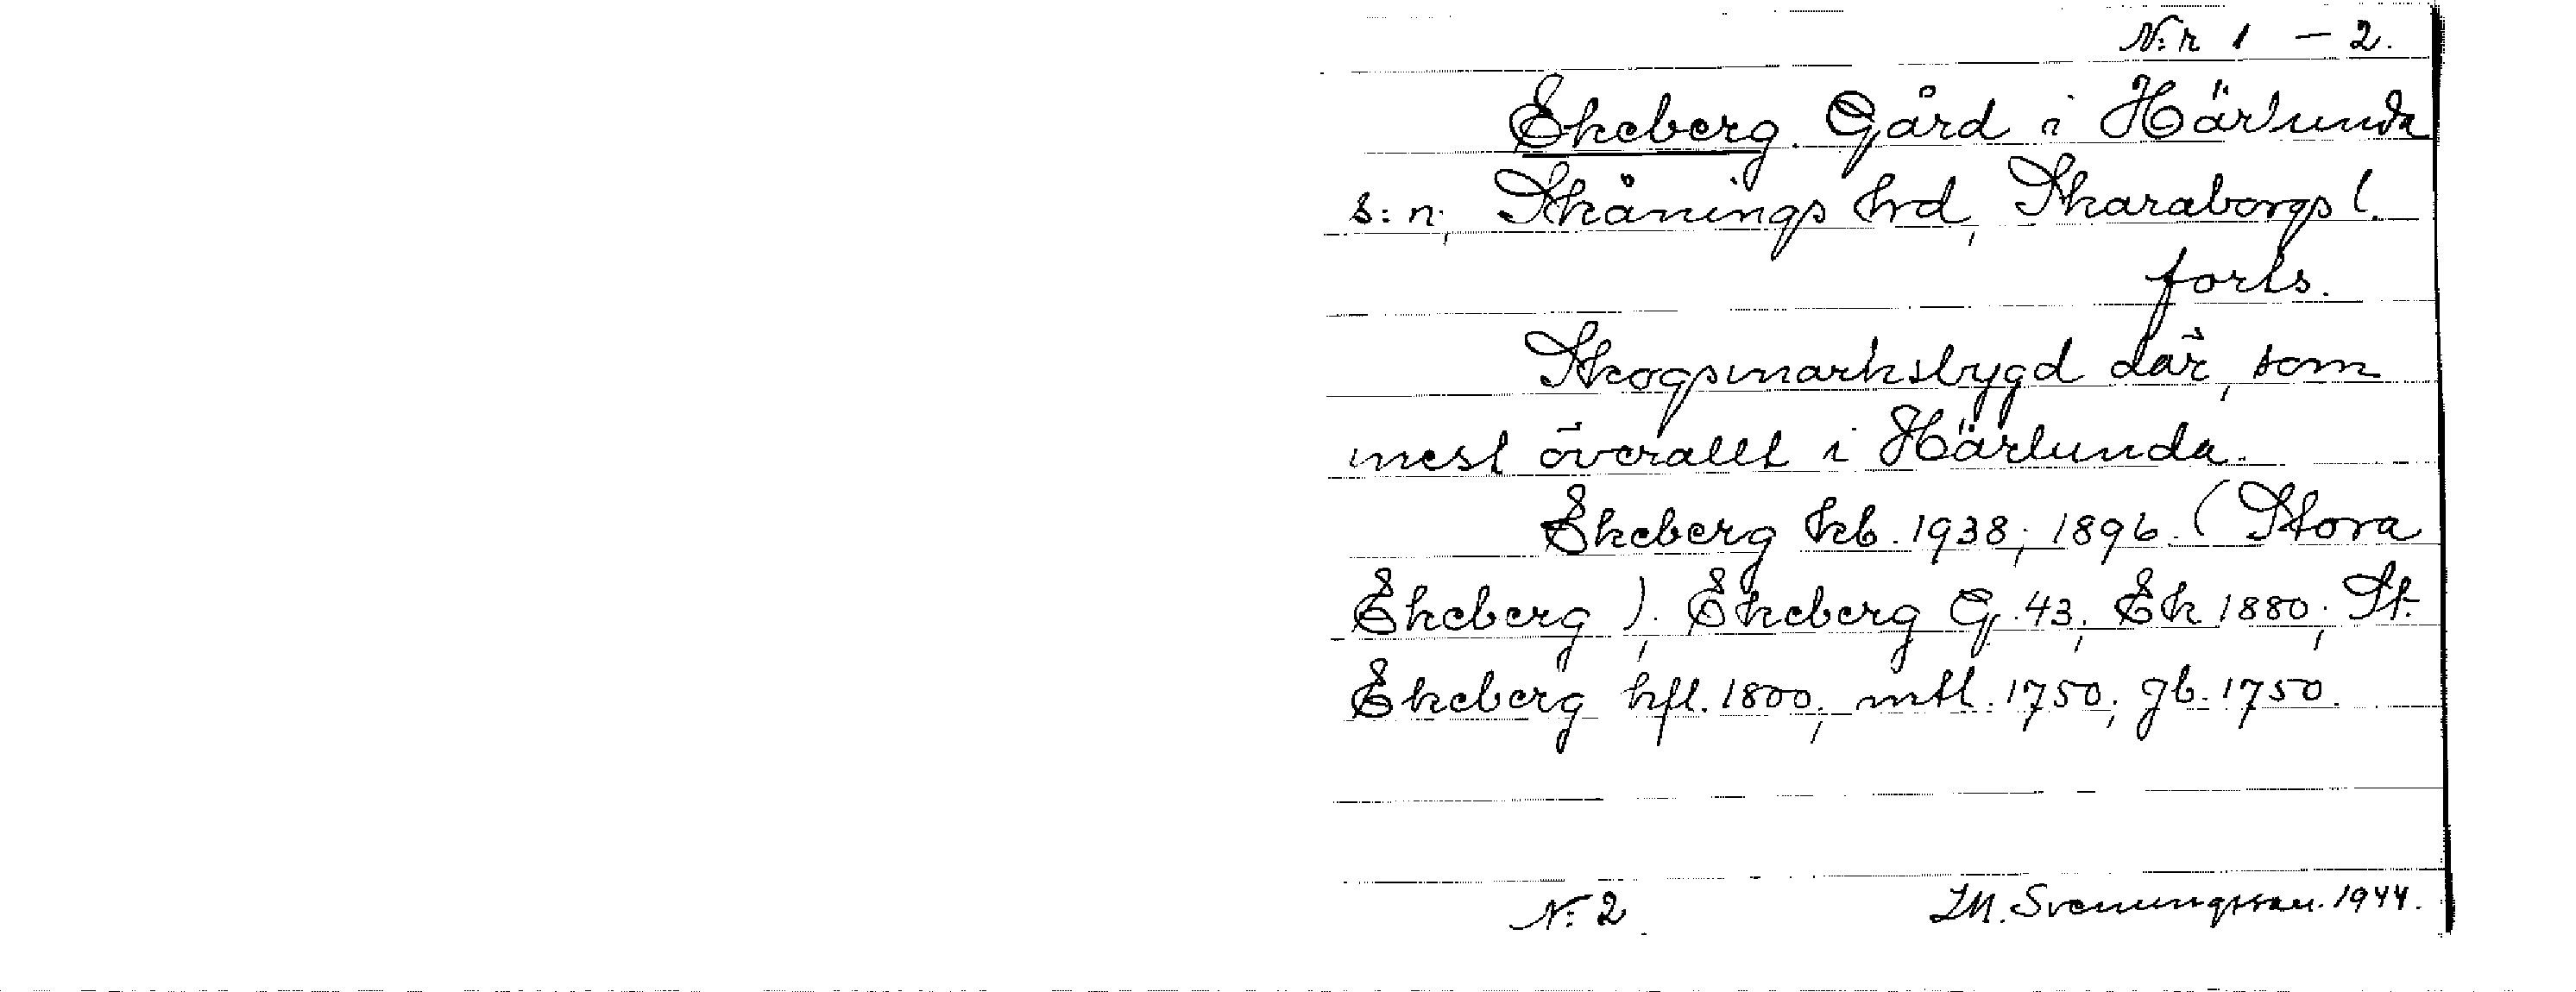 N:r 1 - 2.
Ekeberg. Gård i Härlunda
s:n, Skånings hrd, Skaraborgs l.
forts.
Skogsmarksbygd där, som
mest överallt i Härlunda.
Ekeberg kb. 1938; 1896. (Stora
Ekeberg); Ekeberg G. 43; Ek 1880; St.
Ekeberg hfl. 1800; mtl. 1750; gb. 1750.
N: 2
I.M. Svenungsson. 1944.